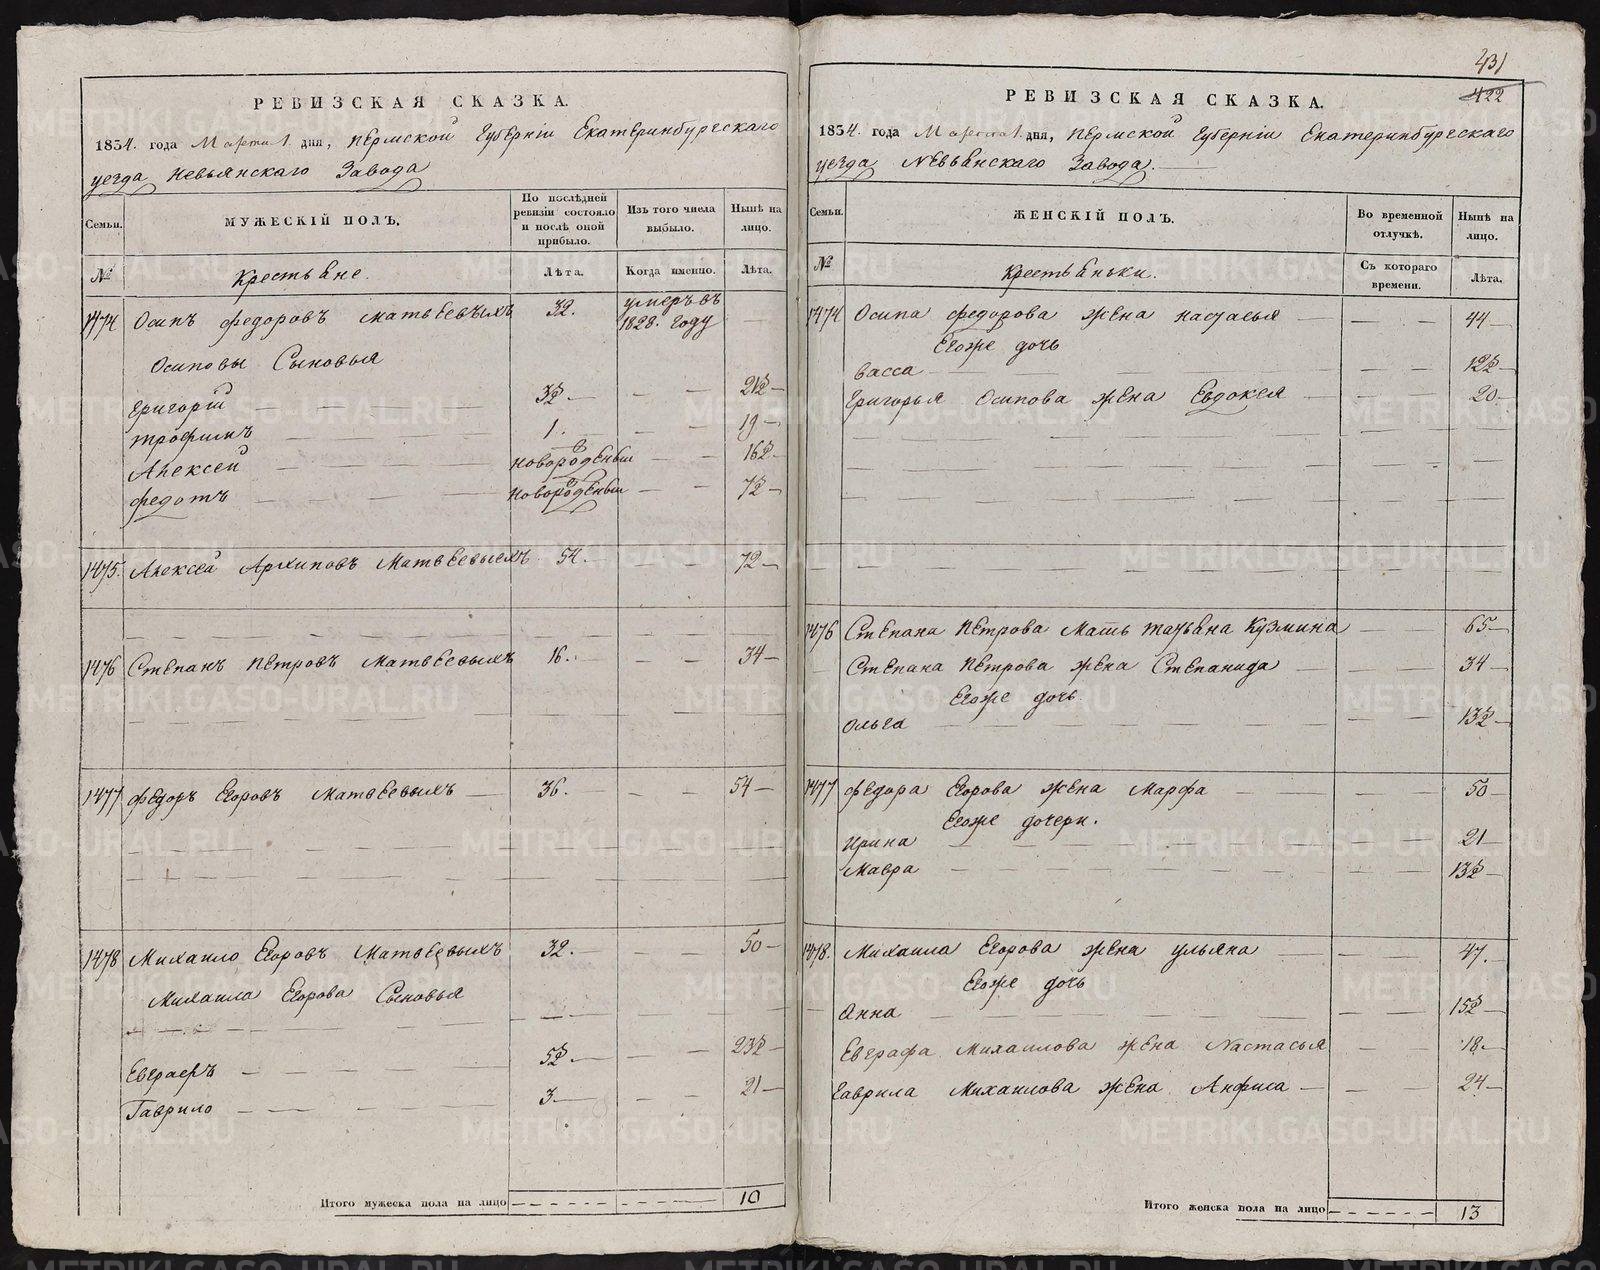 431
422
РЕВИЗСКАЯ СКАЗКА.
1834. года Марта 1 дня, Пермской Губернiи Екатеринбургскаго
уезда Невьянскаго Завода
Семьи.
МУЖЕСКIЙ ПОЛЪ.
По послѣдней ревизiи состояло и послѣ оной прибыло.
Изъ того числа выбыло.
Нынѣ на лицо.
№
Крестьѣне.
Лѣта.
Когда именно.
Лѣта.
1474 Осипъ Федоровъ Матвѣевыхъ 32. умеръ въ 1828. году
Осиповы Сыновья
Григорiй 3½ 21½
Трофимъ 1. 19
Алексей новорожденный 16½
Федотъ новорожденный 7½
1475. Алексей Архиповъ Матвѣевыхъ 54. 72
1476 Степанъ Петровъ Матвѣевыхъ 16. 34
1477 Федоръ Егоровъ Матвѣевыхъ 36. 54
1478 Михаило Егоровъ Матвѣевыхъ 32. 50
Михаила Егорова Сыновья
Евграфъ 5½ 23½
Гаврило 3 21
Итого мужеска пола на лицо 10
РЕВИЗСКАЯ СКАЗКА.
1834. года Марта 1 дня, Пермской Губернiи Екатеринбургскаго
уезда Невьѣнскаго Завода.
Семьи.
ЖЕНСКIЙ ПОЛЪ.
Во временной отлучкѣ.
Нынѣ на лицо.
№
Крестьѣньки.
Съ котораго времени.
Лѣта.
1474 Осипа Федорова жена Настасья 44
Егоже дочь
Васса 12½
Григорья Осипова жена Евдокея 20
1476 Степана Петрова Мать Татьѣна Кузмина 65
Степана Петрова жена Степанида 34
Егоже дочь
Ольга 13½
1477 Федора Егорова жена Марфа 50
Егоже дочери.
Ирина 21
Мавра 13½
1478. Михаила Егорова жена Ульяна 47.
Егоже дочь
Анна 15½
Евграфа Михаилова жена Настасья 18.
Гаврила Михаилова жена Анфиса 24
Итого женска пола на лицо 13
METRIKI.GASO-URAL.RU